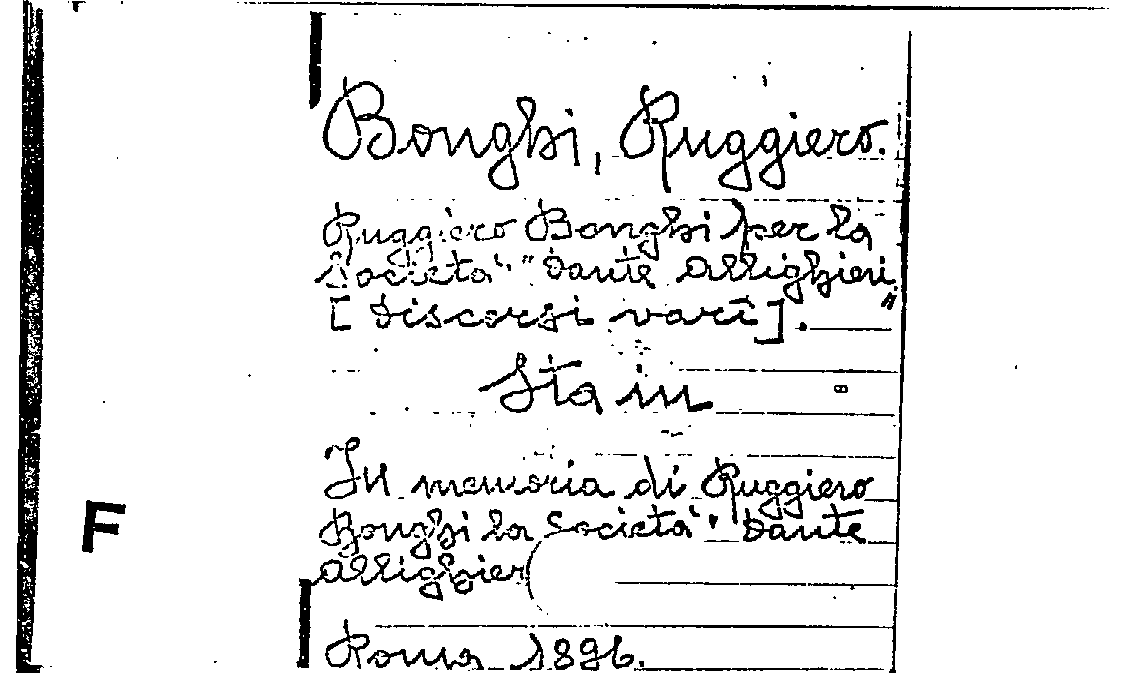 Bonghi, Ruggiero.
Ruggiero Bonghi per la
Società "Dante Allighieri"
[Discorsi varî].
Sta in
In memoria di Ruggiero
Bonghi la Società "Dante
Allighier
Roma 1896.
F